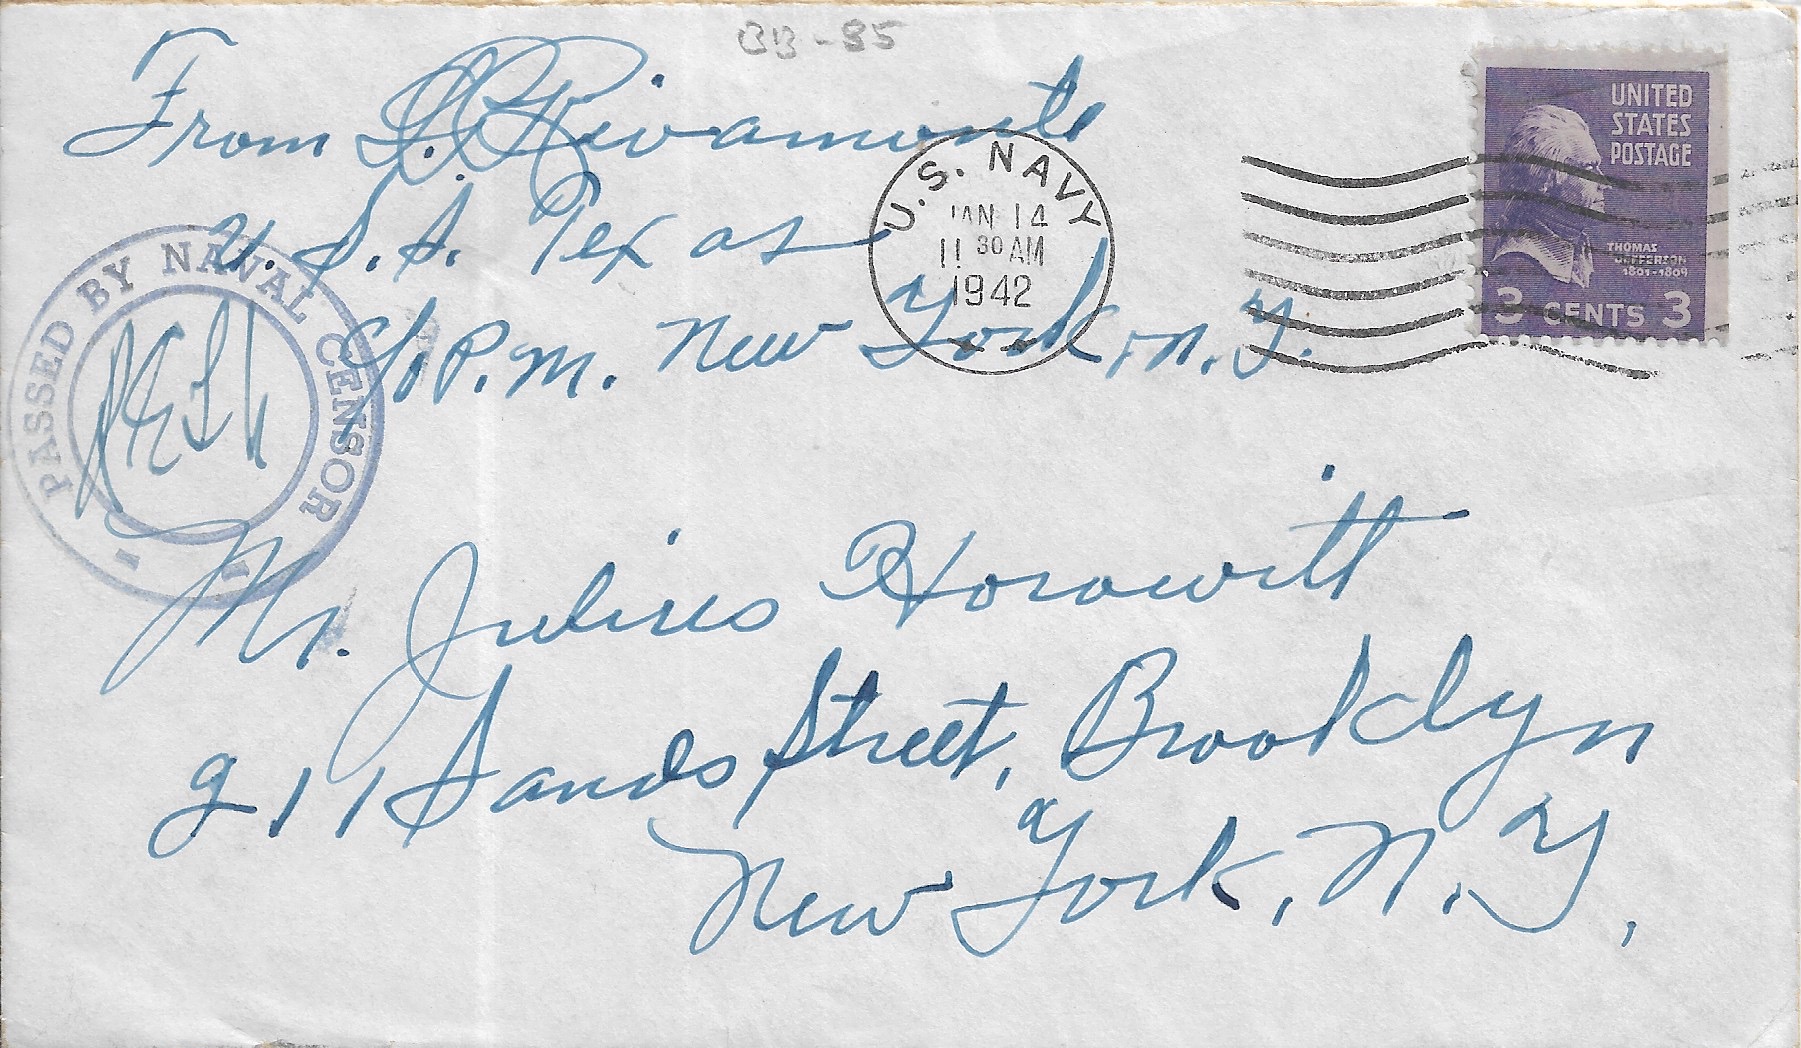 BB-35
From L. Rivamonte
U.S.S. Texas
c/o P.M. New York, N.Y.
U.S. NAVY
JAN 14
11 30 AM
1942
UNITED
STATES
POSTAGE
THOMAS
JEFFERSON
1801-1809
3 CENTS 3
PASSED BY NAVAL CENSOR
Mr. Julius Horowitt
211 Sands Street, Brooklyn
New York, N.Y.